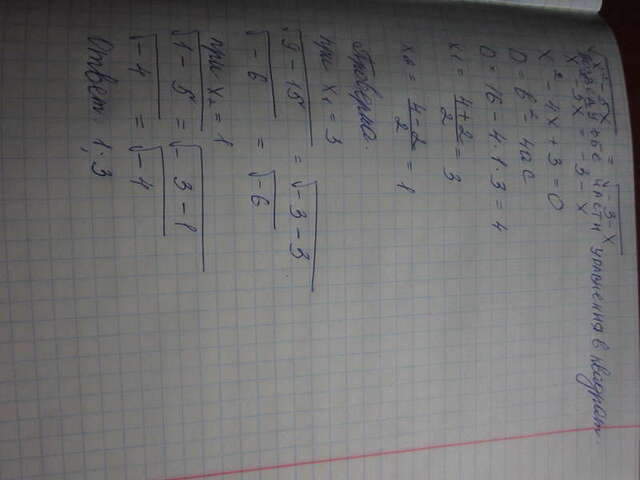 √x² - 5x = √-3 - x
Возведём обе части уравнения в квадрат.
x² - 5x = -3 - x
x² - 4x + 3 = 0
D = b² - 4ac
D = 16 - 4·1·3 = 4
x₁ = (4+2)/2 = 3
x₂ = (4-2)/2 = 1
Проверка.
при x₁ = 3
√9 - 15 = √-3 - 3
√-6 = √-6
при x₂ = 1
√1 - 5 = √-3 - 1
√-4 = √-4
Ответ: 1; 3